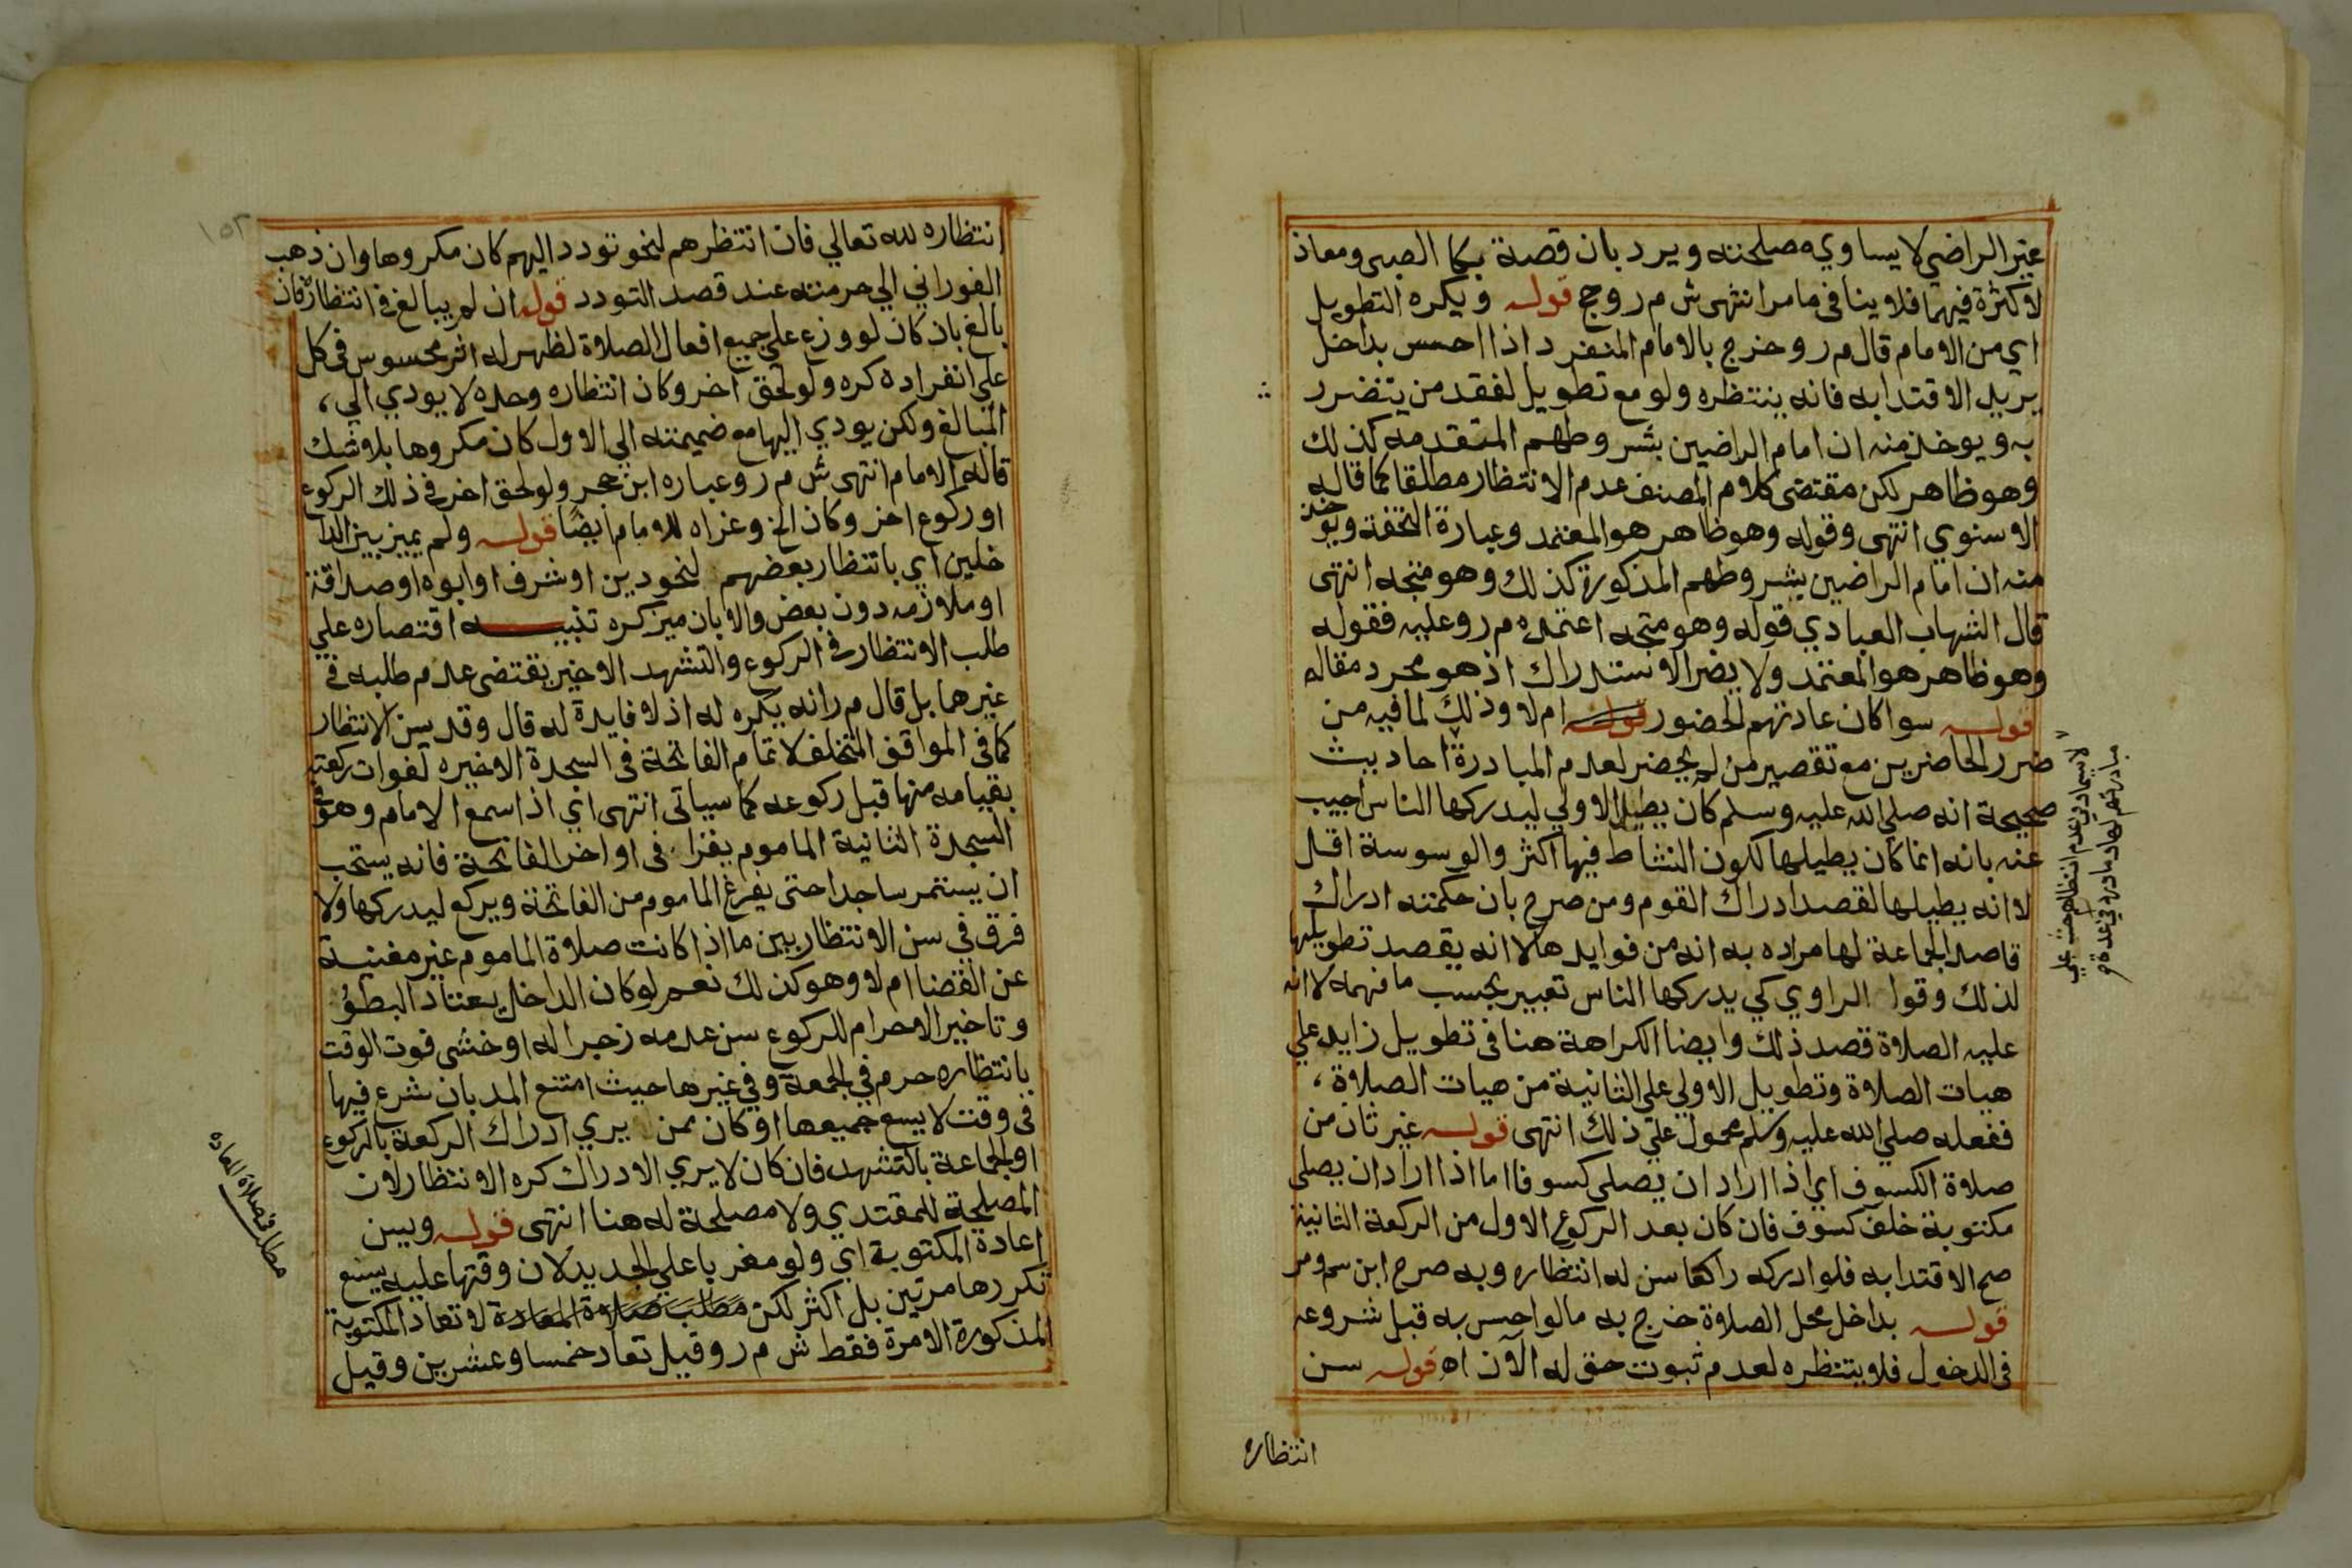 غير الراضي لا يساوي مصلحته ويرد بان قصة بكا الصبى ومعاذ
لا كثرة فيهما فلا ينافى مامر انتهى ش م ر وحج قوله ويكره التطويل
اي من الامام قال م ر وخرج بالامام المنفرد اذا احسس بداخل
يريد الاقتدا به فانه ينتظره ولو مع تطويل لفقد من يتضرر
به ويوخذ منه ان امام الراضيين بشروطهم المتقدمه كذلك
وهو ظاهر لكن مقتضى كلام المصنف عدم الانتظار مطلقا كما قاله
الاسنوي انتهى وقوله وهو ظاهر هو المعتمد وعبارة التحفة ويوخذ
منه ان امام الراضين بشروطهم المذكورة كذلك وهو متجه انتهى
قال الشهاب العبادي قوله وهو متجه اعتمده م ر وعليه فقوله
وهو ظاهر هو المعتمد ولا يضر الاستدراك اذ هو مجرد مقاله
قوله سوا كان عادتهم الحضور قوله ام لا وذلك لما فيه من
ضرر الحاضرين مع تقصير من لم يحضر لعدم المبادرة احاديث
صحيحة انه صلي الله عليه وسلم كان يطيل الاولي ليدركها الناس اجيب
عنه بانه انما كان يطيلها لكون النشاط فيها اكثر والوسوسة اقل
لا انه يطيلها لقصد ادراك القوم ومن صرح بان حكمته ادراك
قاصد الجماعة لها مراده به انه من فوايدها لا انه يقصد تطويلها
لذلك وقوا الراوي كي يدركها الناس تعبير بحسب ما فهمه لا انه
عليه الصلاة قصد ذلك وايضا الكراهة هنا فى تطويل زايد علي
هيات الصلاة وتطويل الاولي على الثانية من هيات الصلاة،
ففعله صلي الله عليه وسلم محمول علي ذلك انتهى قوله غير ثان من
صلاة الكسوف اي اذا اراد ان يصلى كسوفا اما اذا اراد ان يصلى
مكتوبة خلف كسوف فان كان بعد الركوع الاول من الركعة الثانية
صح الاقتدا به فلو ادركه راكعا سن له انتظاره وبه صرح ابن سم ومر
قوله بداخل محل الصلاة خرج به مالو احس به قبل شروعه
فى الدخول فلا ينتظره لعدم ثبوت حق له الآن اه قوله سن
انتظاره
لاسيما دين عدم انتظارهم حث علي
مبادرتهم لها
١٥٢
انتظاره لله تعالي فان انتظرهم لنحو تودد اليهم كان مكروها وان ذهب
الفوراني الي حرمته عند قصد التودد قوله ان لم يبالغ فى انتظاره فان
بالغ بان كان لو وزع علي جميع افعال الصلاة لظهر له اثر محسوس فى كل
علي انفراده كره ولو لحق اخر وكان انتظاره وحده لا يودي الي،
المبالغ ولكن يودي اليها مع ضميمته الي الاول كان مكروها بلا شك
قاله الامام انتهى ش م ر وعباره ابن حجر ولو لحق اخر فى ذلك الركوع
او ركوع اخر وكان الخ وعزاه للامام ايضا قوله ولم يميز بين الدا
خلين اي بانتظار بعضهم لنحو دين او شرف او ابوه او صداقة
او ملازمه دون بعض والا بان ميز كره تنبيه اقتصاره علي
طلب الانتظار فى الركوع والتشهد الاخير يقتضى عدم طلبه فى
غيرهما بل قال م ر انه يكره له اذ لا فايدة له قال وقد سن الانتظار
كما فى الموافق المتخلف لاتمام الفاتحة فى السجدة الاخيره لفوات ركعته
بقيامه منها قبل ركوعه كما سياتى انتهى اي اذا سمع الامام وهو فى
السجدة الثانية الماموم يقرا فى اواخر الفاتحة فانه يستحب
ان يستمر ساجدا حتى يفرغ الماموم من الفاتحة ويركع ليدركها ولا
فرق في سن الانتظار بين ما اذا كانت صلاة الماموم غير مغنية
عن القضا ام لا وهو كذلك نعم لو كان الداخل يعتاد البطؤ
وتاخير الاحرام للركوع سن عدمه زجرا له او خشى فوت الوقت
بانتظاره حرم في الجمعة وفي غيرها حيث امتنع المد بان شرع فيها
فى وقت لا يسع جميعها او كان ممن يري ادراك الركعة بالركوع
او الجماعة بالتشهد فان كان لا يري الادراك كره الانتظار لان
المصلحة للمقتدي ولا مصلحة له هنا انتهى قوله وبين
اعادة المكتوبة اي ولو مغربا علي الجديد لان وقتها عليه يسع
تكررها مرتين بل اكثر لكن مطلب صلاة المعادة لا تعاد المكتوبة
المذكورة الا مرة فقط ش م ر وقيل تعاد خمسا وعشرين وقيل
مطلب فى صلاة المعاده